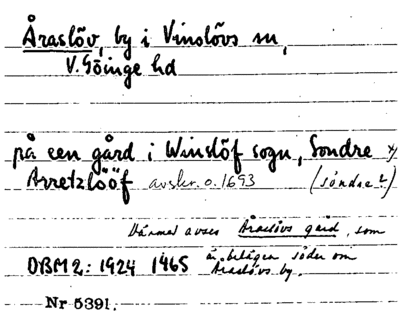 Åraslöv, by i Vinslövs sn,
V. Göinge hd
på een gård i Winslöf sogn, Sondre x)
Arretzlööf avskr. o. 1693 (söndre?)
Därmed avses Åraslövs gård, som
är belägen söder om
DBM2: 1424 1465 Åraslövs by.
Nr 5391.